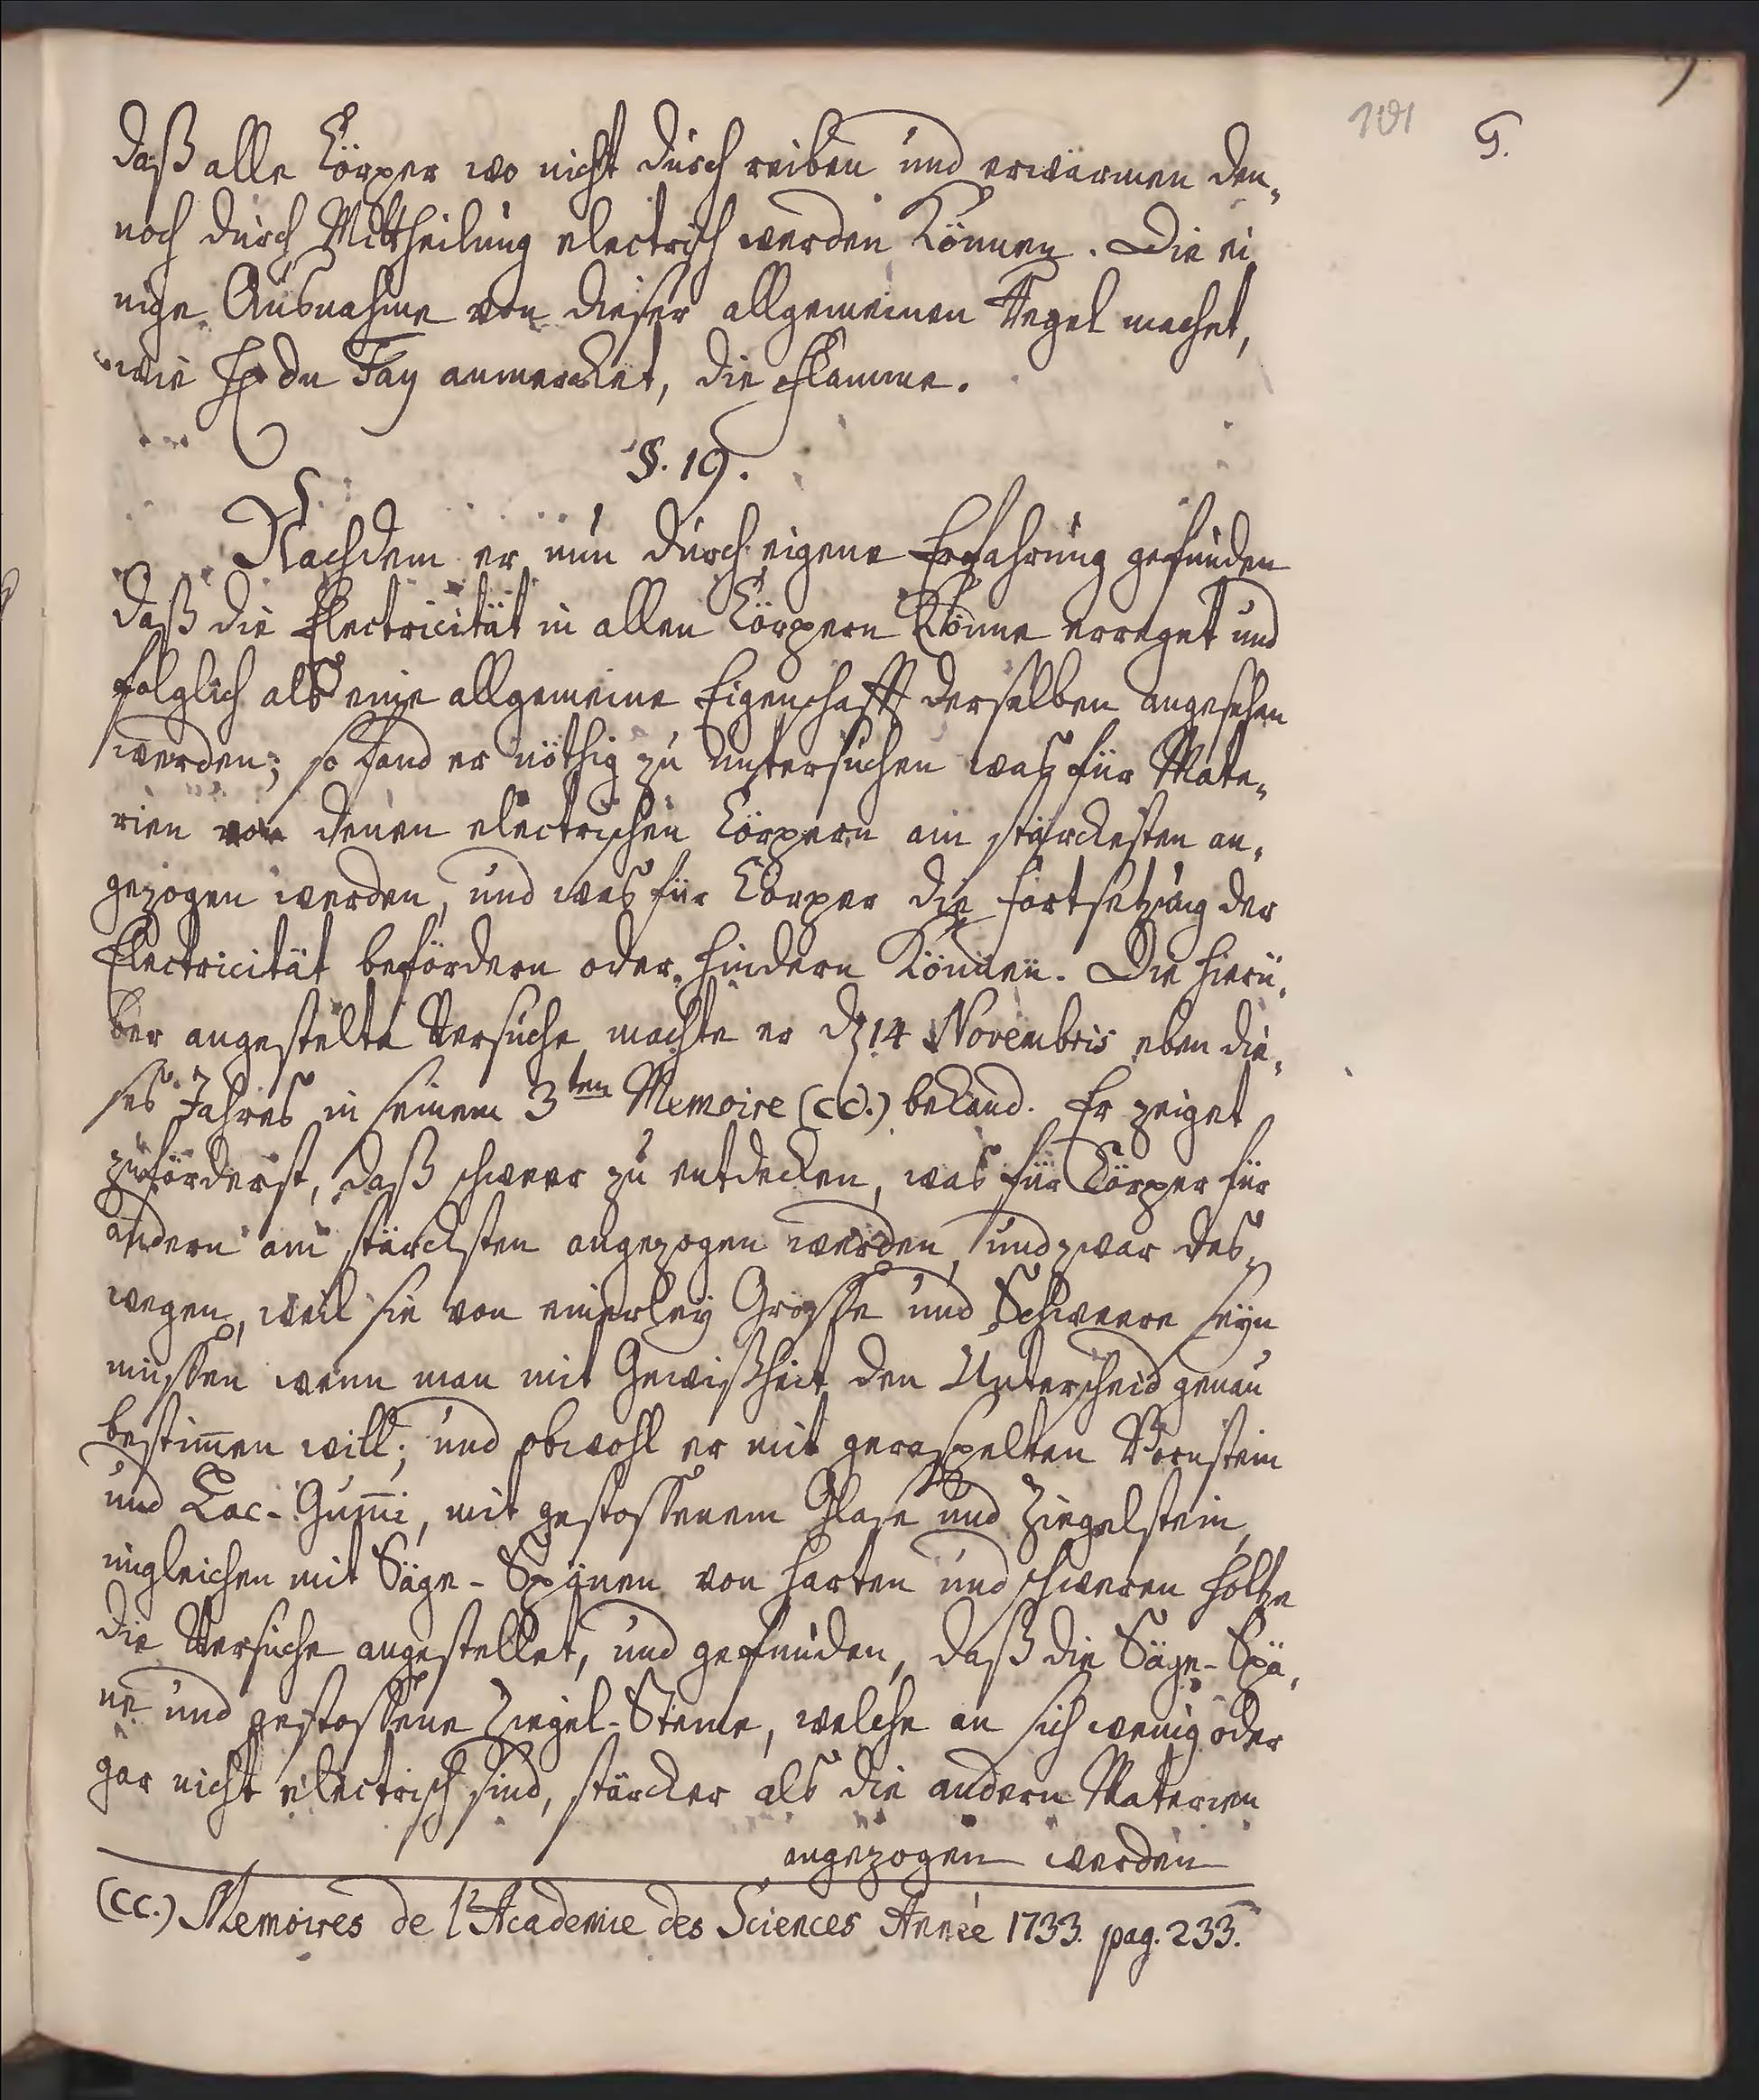 101
G.
daß alle Cörper wo nicht durch reiben und erwärmen den-
noch durch Mittheilung electrisch werden können. Die ei-
nige Ausnahme von dieser allgemeinen Regel machet,
wie H. du Fay anmercket, die Flamme.
§. 19.
Nachdem er nun durch eigene Erfahrung gefunden
daß die Electricität in allen Cörpern könne erreget und
folglich als eine allgemeine Eigenschafft derselben angesehen
werden; so fand er nöthig zu untersuchen was für Mate-
rien von denen electrischen Cörpern am stärckesten an-
gezogen werden, und was für Cörper die Fortsetzung der
Electricität befördern oder hindern können. Die hierü-
ber angestelte Versuche machte er d. 14 Novembris eben die-
ses Jahres in seinem 3ten Memoire (cc.) bekand. Er zeiget
zuförderst, daß schweer zu entdecken, was für Cörper für
andern am stärcksten angezogen werden, und zwar des-
wegen, weil sie von einerley Grösse und Schweere seyn
müssen wenn man mit Gewißheit den Unterscheid genau
bestim̅en will; und obwohl er mit geraspelten Bornstein
und Lac-Gum̅i, mit gestossenem Glase und Ziegelstein,
imgleichen mit Säge-Spänen von harten und schweren Holtze
die Versuche angestellet, und gefunden, daß die Säge-Spä-
ne und gestossene Ziegel-Steine, welche an sich wenig oder
gar nicht electrisch sind, stärcker als die andern Materien
angezogen werden
(cc.) Memoires de l'Academie des Sciences Année 1733. pag. 233.